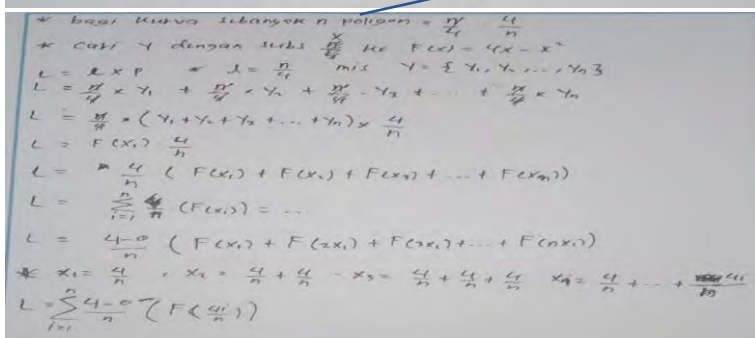 * bagi kurva sebanyak n poligon = n/4 4/n
* cari y dengan subs x ke F(x) = 4x - x²
L = l x p * l = n/4 mis Y = {Y₁, Y₂, ..., Yn}
L = n/4 x Y₁ + n/4 x Y₂ + n/4 . Y₃ + ... + n/4 x Yn
L = n/4 * (Y₁ + Y₂ + Y₃ + ... + Yn) x 4/n
L = F(x₁) 4/n
L = 4/n (F(x₁) + F(x₂) + F(x₃) + ... + F(xn))
L = Σ_{i=1}^{n} 4/n (F(xi)) = ...
L = 4-0/n (F(x₁) + F(2x₁) + F(3x₁) + ... + F(nx₁))
* x₁ = 4/n , x₂ = 4/n + 4/n - x₃ = 4/n + 4/n + 4/n xi = 4/n + ... + 4i/n
L = Σ_{i=1}^{n} 4-0/n (F(4i/n))